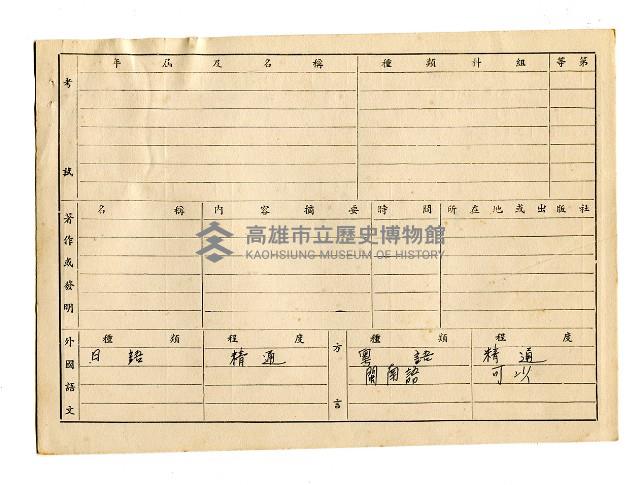 考試
年屆及名稱 種類科組 等第
著作或發明
名稱 內容摘要 時間 所在地或出版社
高雄市立歷史博物館
KAOHSIUNG MUSEUM OF HISTORY
外國語文
種類 程度
方言
種類 程度
日語 精通 粵語 精通
閩南語 可以